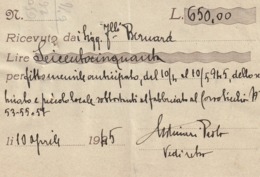 N. L. 650,00
Ricevuto dai Sigg. F.lli Bernard
Lire Seicentocinquanta
per fitto mensile anticipato, del 10/4 al 10/5 945, dello
e piccolo locale sottostanti al fabbricato al Corso N°
53-55-57
lì 10 Aprile 1945
Paolo